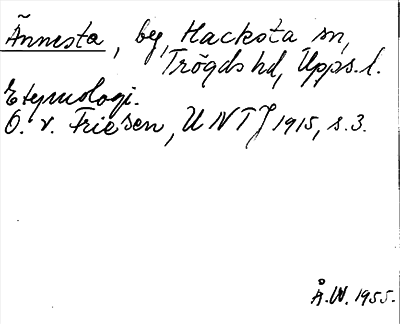 Ännesta, by, Hacksta sn,
Trögds hd, Upps. l.
Etymologi.
O. v. Friesen, UNTJ 1915, s. 3.
Å.W. 1955.